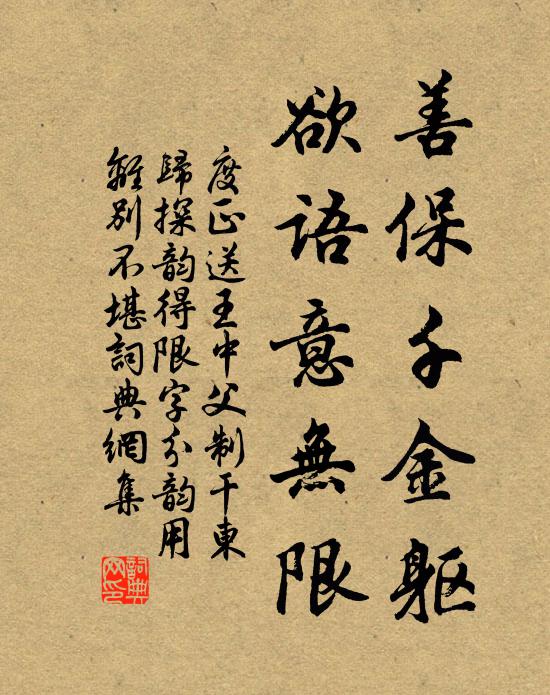 善保千金軀
欲語意無限
度正送王中父制干東
歸探韵得限字分韵用
離別不堪詞典網集
詞典網印